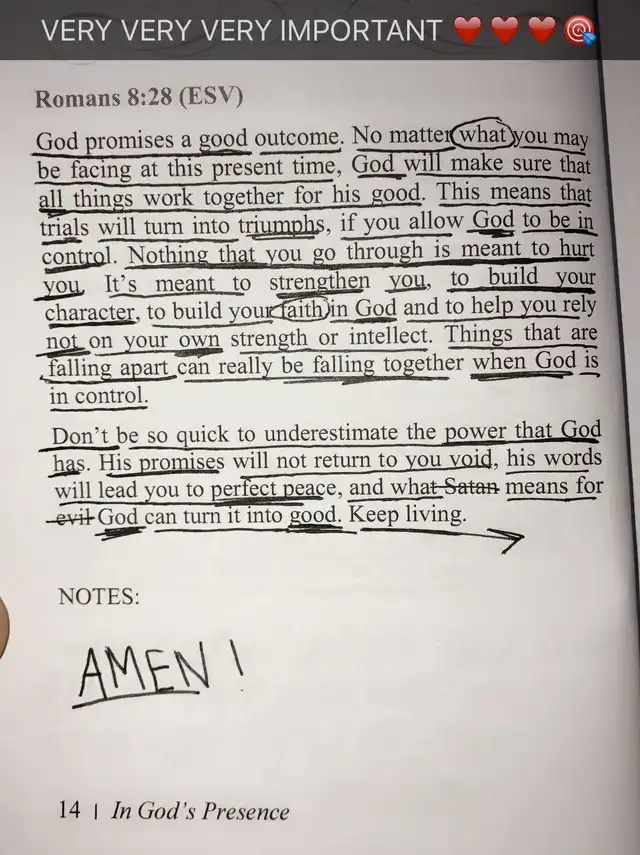 VERY VERY VERY IMPORTANT ❤️❤️❤️🎯
Romans 8:28 (ESV)
God promises a good outcome. No matter what you may
be facing at this present time, God will make sure that
all things work together for his good. This means that
trials will turn into triumphs, if you allow God to be in
control. Nothing that you go through is meant to hurt
you. It's meant to strengthen you, to build your
character, to build your faith in God and to help you rely
not on your own strength or intellect. Things that are
falling apart can really be falling together when God is
in control.
Don't be so quick to underestimate the power that God
has. His promises will not return to you void, his words
will lead you to perfect peace, and what Satan means for
evil God can turn it into good. Keep living.
NOTES:
AMEN!
14 | In God's Presence